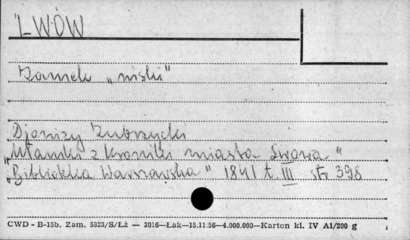 LWÓW
Zamek „niski"
Djonizy Zubrzycki
„Ułamki z kroniki miasta Lwowa"
„Biblioteka Warszawska" 1841 t. III str 398
CWD - B-15b. Zam. 5823/S/Łż — 3016—Łak—15.11.56—4.000.000—Karton kl. IV A1/200 g